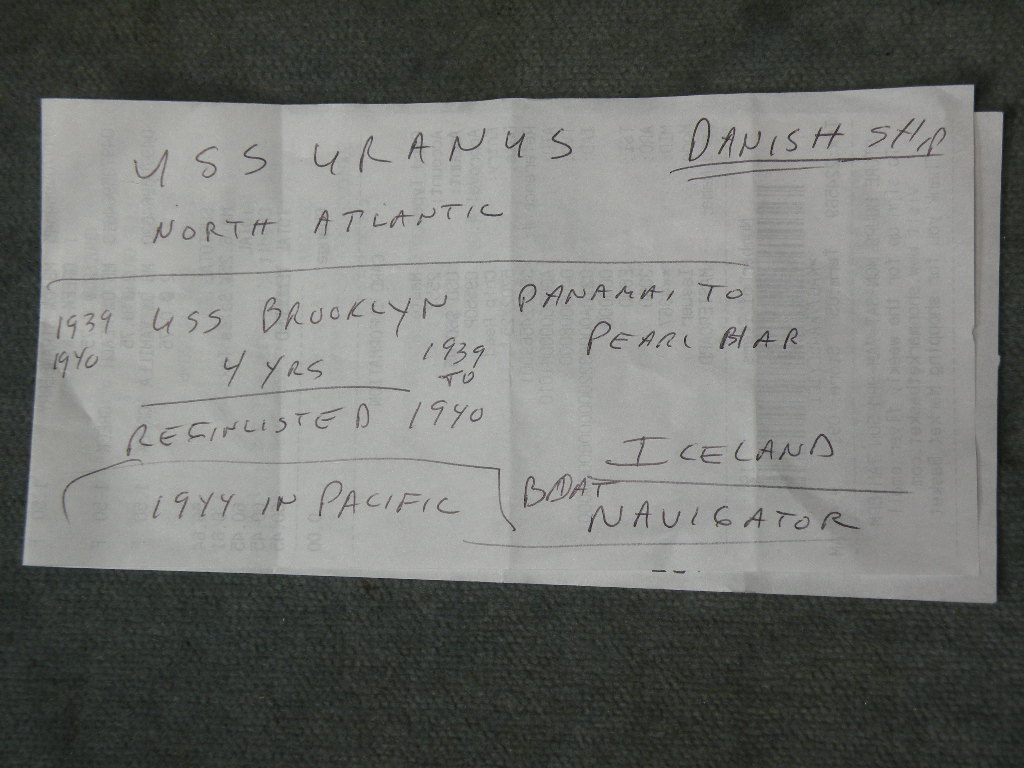 USS URANUS
DANISH SHIP
NORTH ATLANTIC
1939
1940
USS BROOKLYN
4 YRS
1939
TO
REEINLISTED 1940
1944 IN PACIFIC
PANAMAI TO
PEARL HAR
ICELAND
BOAT
NAVIGATOR